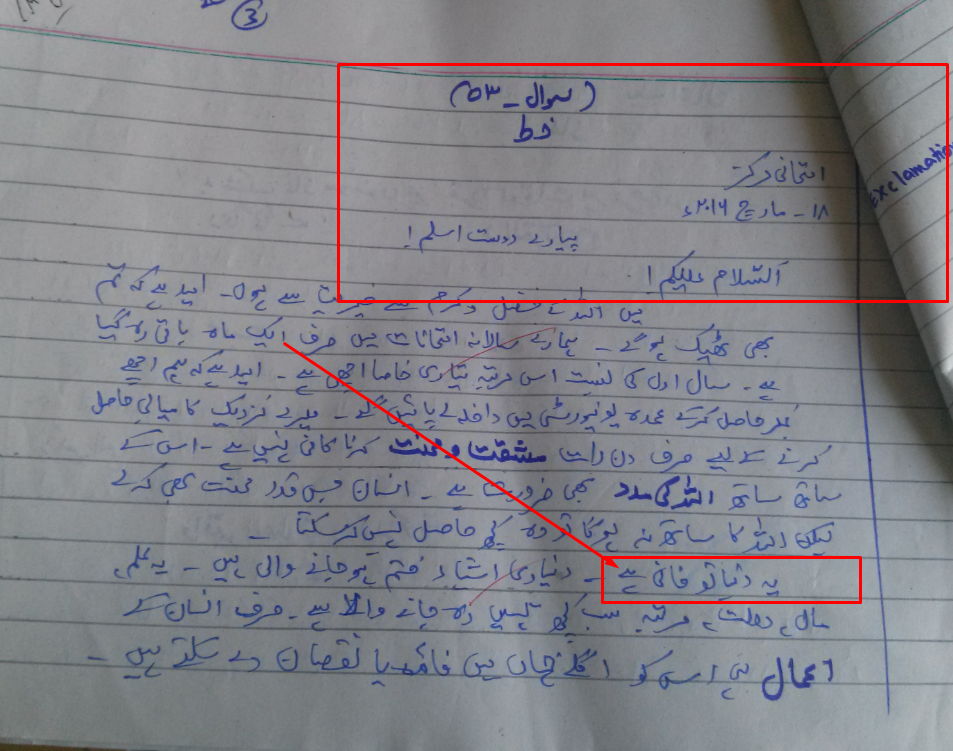 ③
(سوال - ۰۳)
خط
امتحانی مرکز
۱۸ - مارچ ۲۰۱۶ء
Exclamation
پیارے دوست اسلم!
السلام علیکم!
میں اللہ کے فضل و کرم سے خیریت سے ہوں - امید ہے کہ تم
بھی ٹھیک ہو گے - ہمارے سالانہ امتحانات میں صرف ایک ماہ باقی رہ گیا
ہے - سال اول کی نسبت اس مرتبہ تیاری خاصا اچھی ہے - امید ہے کہ ہم اچھے
نمبر حاصل کرکے عمدہ یونیورسٹی میں داخلے پائیں گے - میرے نزدیک کامیابی حاصل
کرنے کے لیے صرف دن رات مشقت و محنت کرنا کافی نہیں ہے - اس کے
ساتھ ساتھ اللہ کی مدد بھی ضرورت ہے - انسان جس قدر محنت بھی کرلے
لیکن اللہ کا ساتھ نہ ہوگا تو وہ کچھ حاصل نہیں کرسکتا -
یہ دنیا تو فانی ہے - دنیاوی اشیاء ختم ہوجانے والی ہیں - یہ علم،
مال، دولت، مرتبہ سب کچھ یہیں رہ جانے والا ہے - صرف انسان کے
اعمال ہی اس کو اگلے جہاں میں فائدہ یا نقصان دے سکتے ہیں -